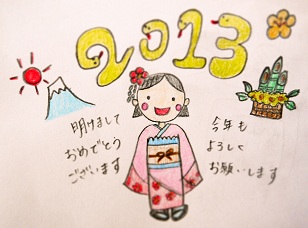 2013
明けまして
おめでとう
ございます
今年も
よろしく
お願いします